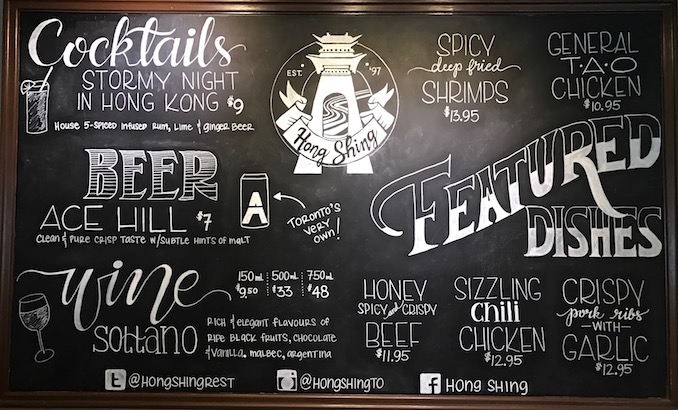 Cocktails
STORMY NIGHT
IN HONG KONG $9
House 5-Spiced infused rum, lime & ginger beer
BEER
ACE HILL $7
clean & pure crisp taste w/subtle hints of malt
A
TORONTO'S
very
own!
wine
sottano
150mL 500mL 750mL
$9.50 $33 $48
Rich & elegant flavours of
ripe black fruits, chocolate
& vanilla. malbec, argentina
EST. '97
Hong Shing
SPICY
deep fried
SHRIMPS
$13.95
GENERAL
T·A·O
CHICKEN
$10.95
FEATURED
DISHES
HONEY
SPICY and CRISPY
BEEF
$11.95
SIZZLING
chili
CHICKEN
$12.95
CRISPY
pork ribs
-WITH-
GARLIC
$12.95
@HONGSHINGREST
@HONGSHINGTO
Hong Shing